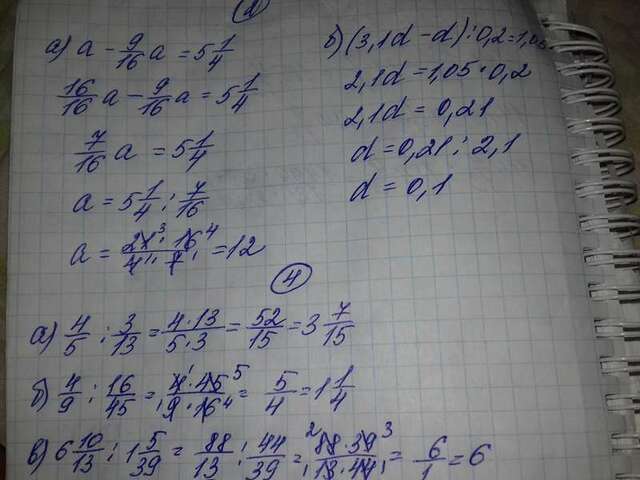 2
а) a - 9/16 a = 5 1/4
16/16 a - 9/16 a = 5 1/4
7/16 a = 5 1/4
a = 5 1/4 : 7/16
a = 21³ · 16⁴ / 4₁ · 7₁ = 12
б) (3,1d - d) : 0,2 = 1,05
2,1d = 1,05 · 0,2
2,1d = 0,21
d = 0,21 : 2,1
d = 0,1
4
а) 4/5 : 3/13 = 4·13/5·3 = 52/15 = 3 7/15
б) 4/9 : 16/45 = 4¹·45⁵/₁9·16₄ = 5/4 = 1 1/4
в) 6 10/13 : 1 5/39 = 88/13 : 44/39 = ²88·39³/₁13·44₁ = 6/1 = 6